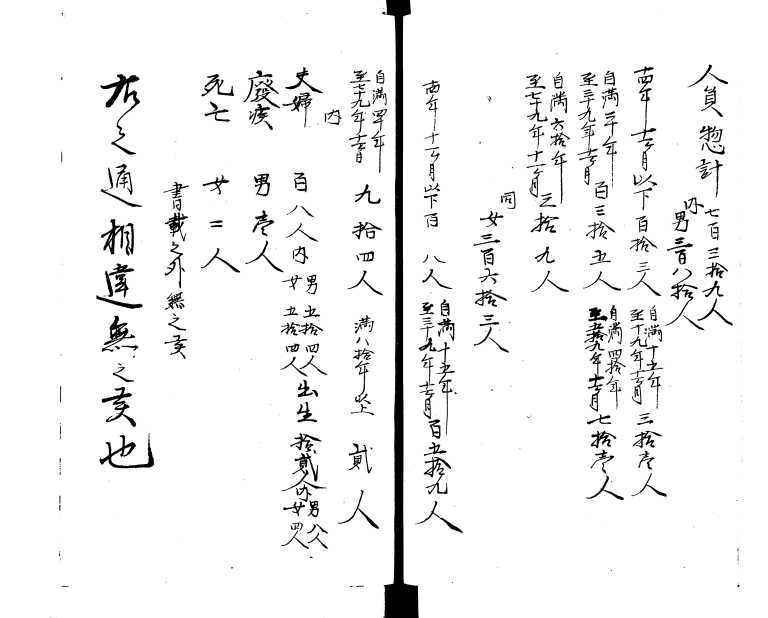 人員惣計 七百三拾九人
内男三百八拾人
十四年十一ヶ月以下百拾三人 自満十五年至十九年十一ヶ月 三拾壱人
自満二十年至三十九年十一ヶ月 百三拾五人 自満四拾年至五拾九年十一ヶ月 七拾壱人
自満六拾年至七十九年十一ヶ月 三拾九人
同女三百六拾三人
十四年十一ヶ月以下百八人 自満十五年至三十九年十一ヶ月 百五拾九人
自満四十年至七十九年十一ヶ月 九拾四人 満八拾年以上 貳人
内
夫婦 百八人内 男五拾四人 女五拾四人 出生拾貳人内 男八人 女四人
廢疾 男壱人
死亡 女二人
書載之外無之候
右之通相違無之候也